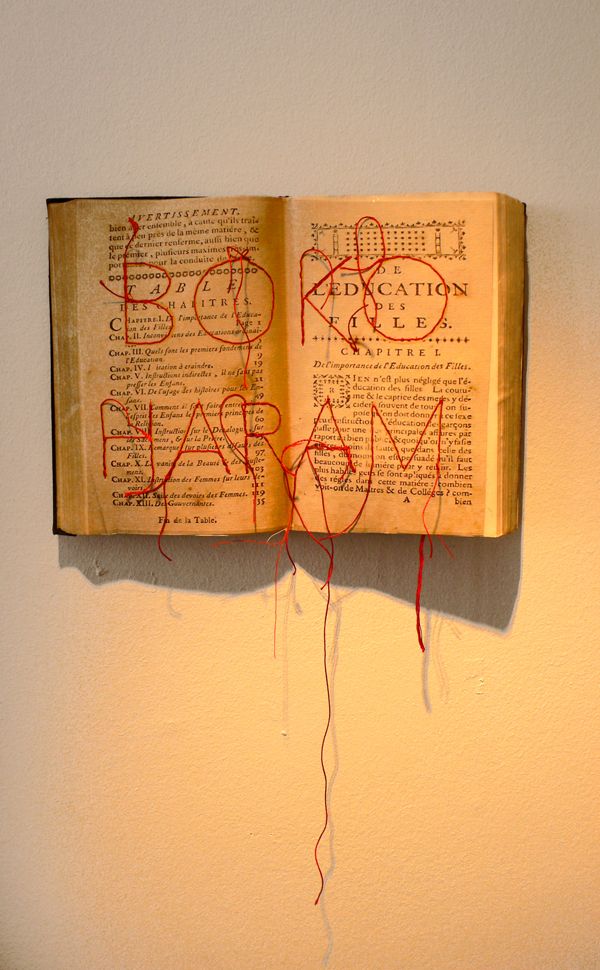 BOKO
HARAM
AVERTISSEMENT.
enſemble, à cauſe qu'ils trai-
tent à peu près de la même matiére, &
que ce dernier renferme, auſſi bien que
le premier, pluſieurs maximes
pour la conduite de
TABLE
DES CHAPITRES.
CHAPITRE I. De l'importance de l'Educa-
tion des Filles. Page 1
CHAP. II. Inconvéniens des Educations ordinai-
CHAP. III. Quels ſont les premiers fondemens de
l'Education. 9
CHAP. IV. Imitation à craindre. 19
CHAP. V. Inſtructions indirectes, il ne faut pas
preſſer les Enfans. 21
CHAP. VI. De l'uſage des hiſtoires pour les En-
fans. 49
CHAP. VII. Comment il faut faire entrer
l'eſprit des Enfans les premiers principes de
la Religion. 60
CHAP. VIII. Inſtruction ſur le Décalogue, ſur
les Sacremens, & ſur la Priére.
CHAP. IX. Remarques ſur pluſieurs défauts des
Filles. 97
CHAP. X. La vanité de la Beauté & des ajuſte-
mens. 103
CHAP. XI. Inſtruction des Femmes ſur leurs de-
voirs. 111
CHAP. XII. Suite des devoirs des Femmes. 119
CHAP. XIII. Des Gouvernantes. 135
Fin de la Table.
DE
L'EDUCATION
DES
FILLES.
CHAPITRE I.
De l'importance de l'Education des Filles.
RIEN n'eſt plus négligé que l'é-
ducation des filles. La coutu-
me & le caprice des meres y dé-
cident ſouvent de tout: on ſu-
poſe qu'on doit donner à ce ſexe
peu d'inſtruction. L'éducation des garçons
paſſe pour une des principales affaires par
raport au bien public, & quoiqu'on n'y faſſe
guéres moins de fautes que dans celle des
filles, du moins on eſt perſuadé qu'il faut
beaucoup de lumiére pour y réuſſir. Les
plus habiles gens ſe ſont apliqués à donner
des régles dans cette matiére: combien
voit-on de Maîtres & de Colléges? com-
A
bien